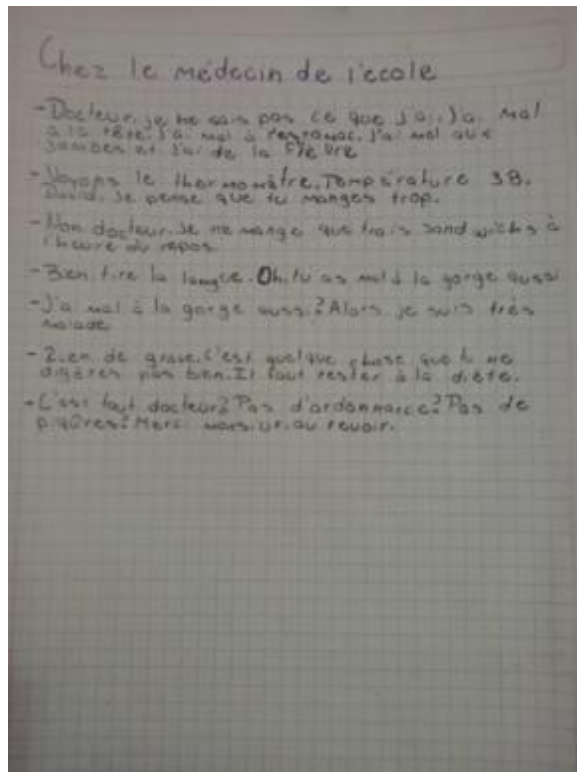 Chez le médecin de l'ecole
- Docteur, je ne sais pas ce que j'ai. J'ai mal
à la tête. J'ai mal à l'estomac. J'ai mal aux
jambes et j'ai de la fièvre
- Voyons le thermomètre. Température 38.
David, je pense que tu manges trop.
- Non docteur. Je ne mange que trois sandwichs à
l'heure du repos.
- Bien, tire la langue. Oh, tu as mal à la gorge aussi
- J'ai mal à la gorge aussi? Alors je suis très
malade
- Rien de grave. C'est quelque chose que tu ne
digères pas bien. Il faut rester à la diète.
- C'est tout docteur? Pas d'ordonnance? Pas de
piqûres? Merci monsieur, au revoir.